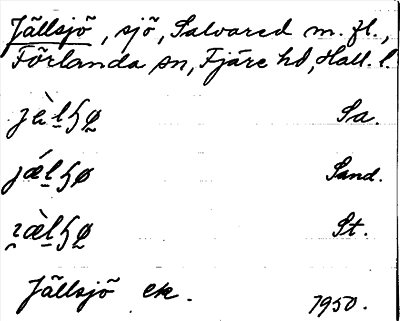 Jällsjö, sjö, Salvared m. fl.,
Förlanda sn, Fjäre hd, Hall. l.
Sa.
Sand.
St.
Jällsjö ek. 1950.